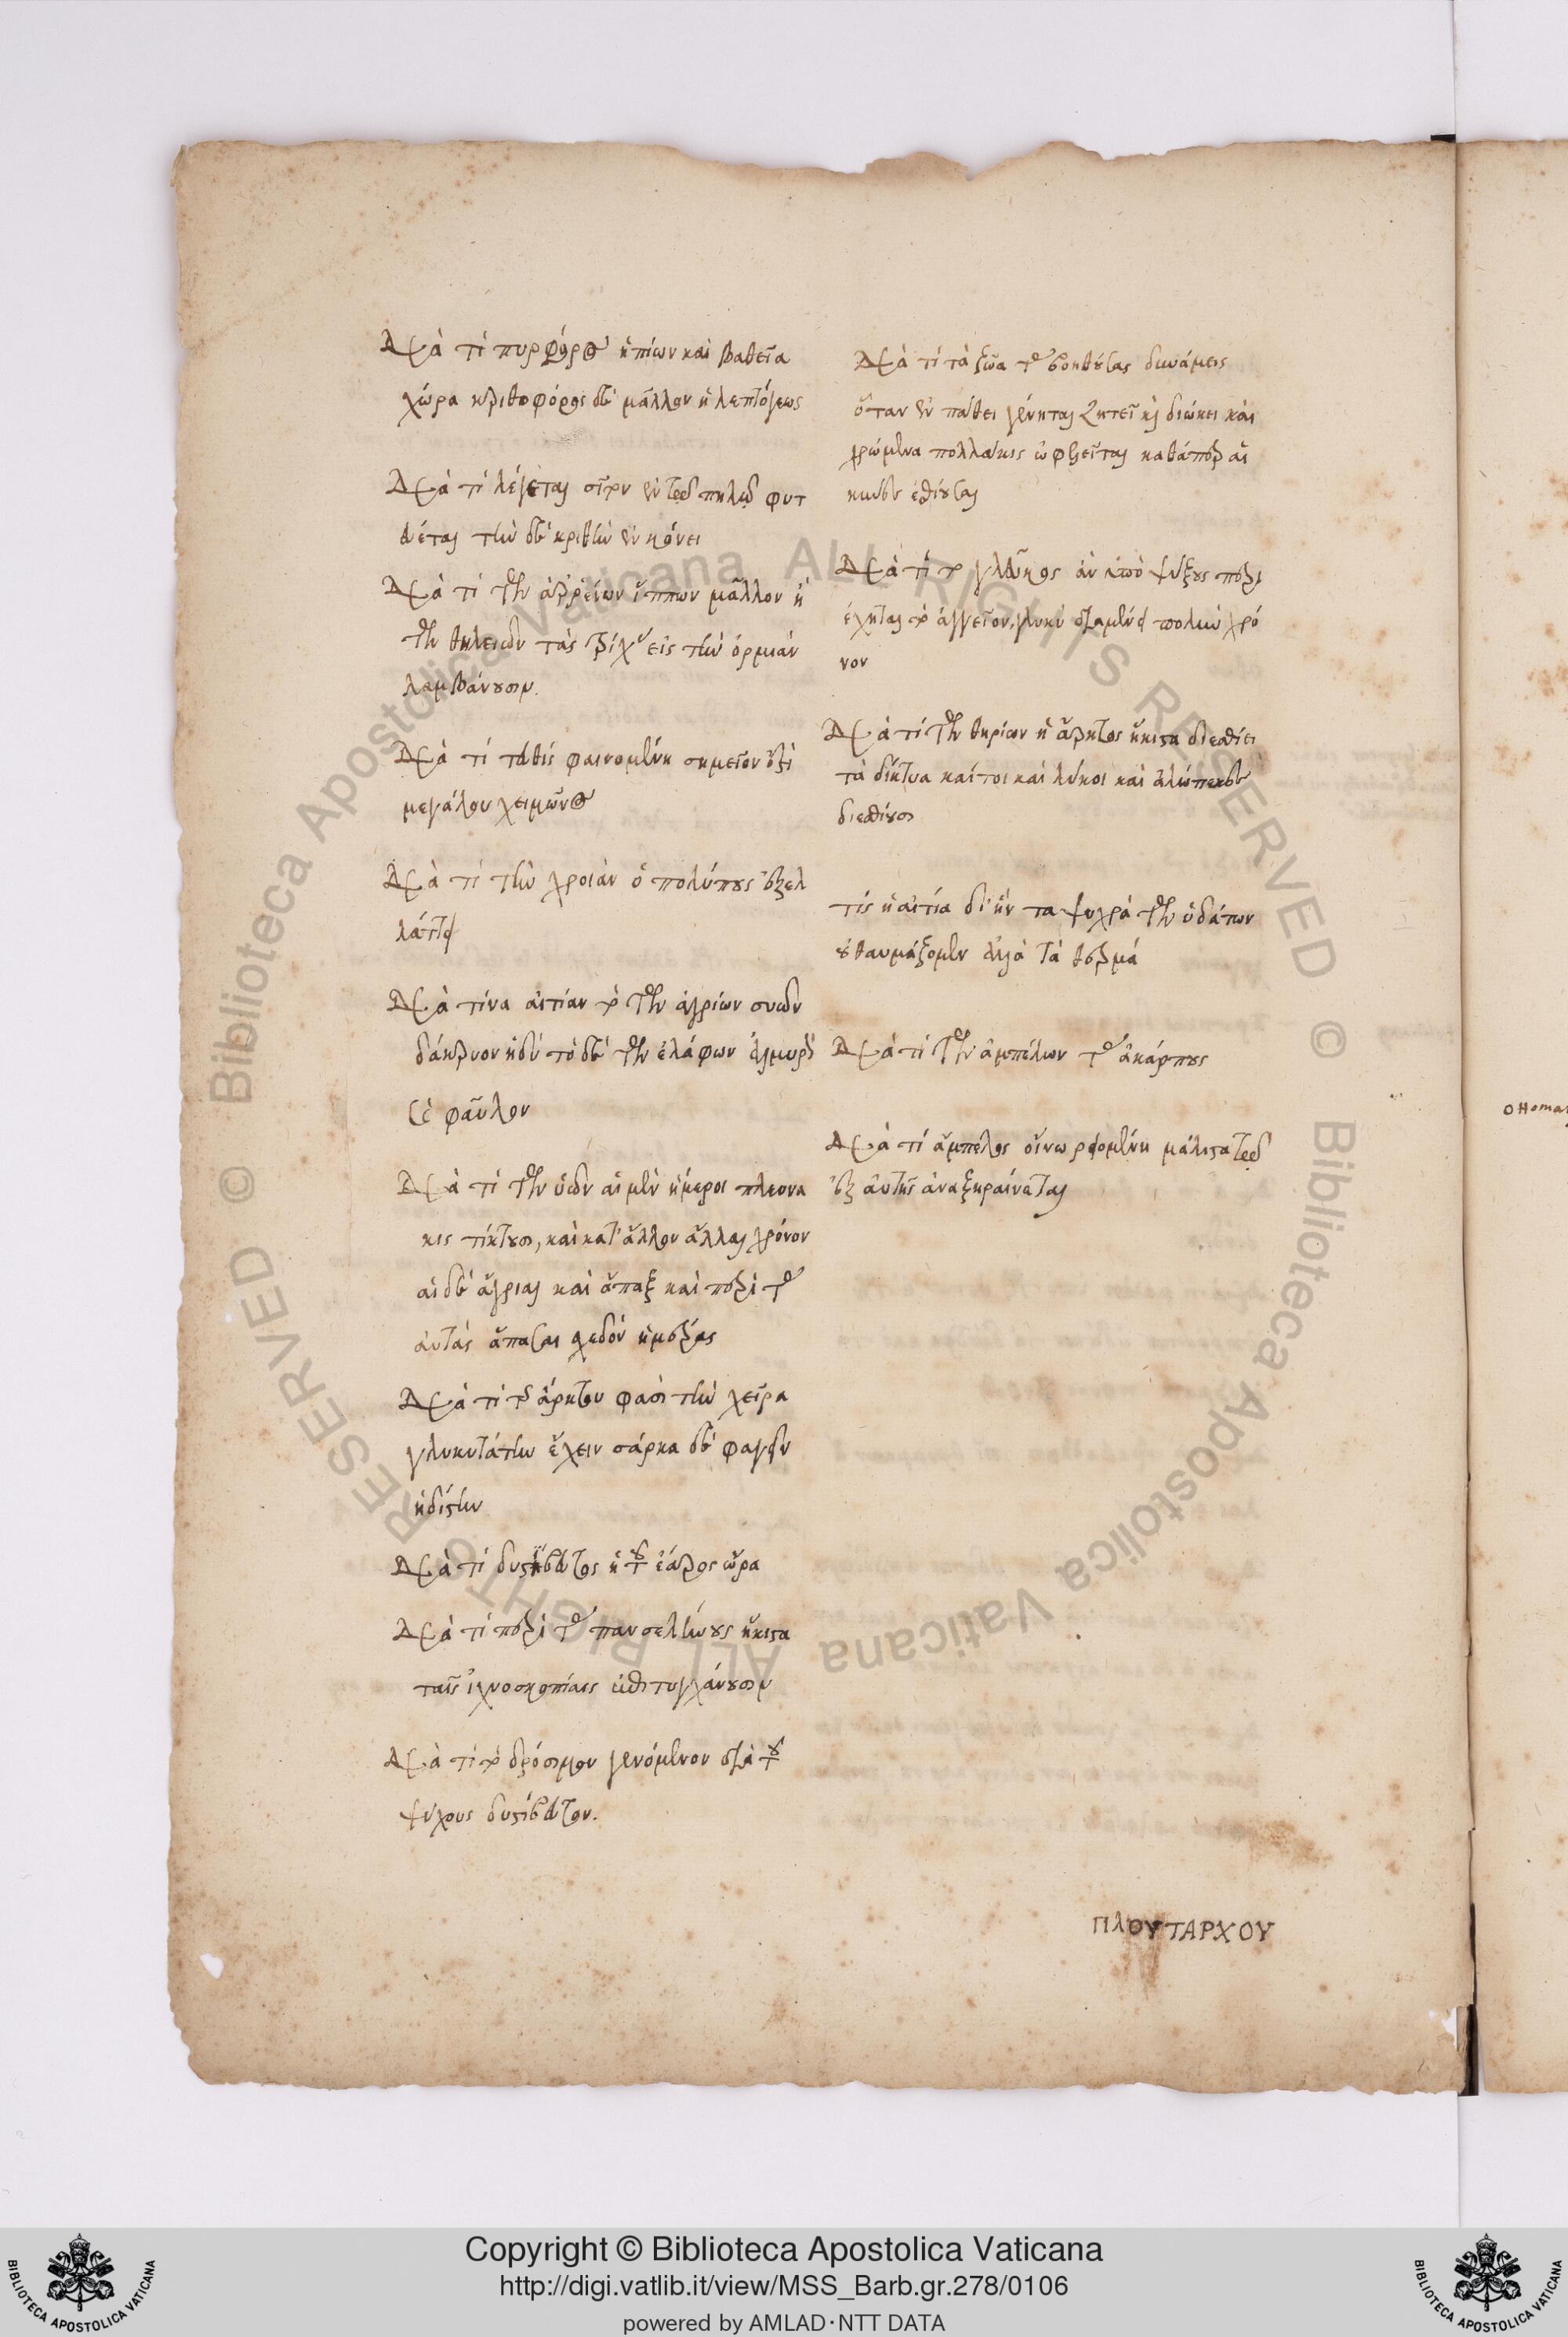 Διὰ τί πυροφόρος ἡ πίων καὶ βαθεῖα
χώρα κριθοφόρος δὲ μᾶλλον ἡ λεπτόγεως
Διὰ τί λέγεται σῖτον ἐν τῷ πηλῷ φυτ
εύεται τὴν δὲ κριθὴν ἐν κόνει
Διὰ τί τῶν ἀρρένων ἵππων μᾶλλον ἢ
τῶν θηλειῶν τὰς τρίχας εἰς τὴν ὁρμιὰν
λαμβάνουσιν.
Διὰ τί τευθὶς φαινομένη σημεῖον ἐστὶ
μεγάλου χειμῶνος
Διὰ τί τὴν χροιὰν ὁ πολύπους ἐξαλ
λάττει
Διὰ τίνα αἰτίαν τὸ τῶν ἀγρίων συῶν
δάκρυον ἡδὺ τὸ δὲ τῶν ἐλάφων ἁλμυρὸν
καὶ φαῦλον
Διὰ τί τῶν ὑῶν αἱ μὲν ἥμεροι πλεονα
κις τίκτουσι, καὶ κατ' ἄλλον ἄλλαι χρόνον
αἱ δὲ ἄγριαι καὶ ἅπαξ καὶ περὶ τὰς
αὐτὰς ἅπασαι σχεδὸν ἡμέρας
Διὰ τί τῆς ἄρκτου φασὶ τὴν χεῖρα
γλυκυτάτην ἔχειν σάρκα δὲ φαγεῖν
ἡδίστην
Διὰ τί δυσίβατος ἡ τοῦ ἔαρος ὥρα
Διὰ τί περὶ τὰς πανσελήνους ἥκιστα
ταῖς ἰχνοσκοπίαις ἐπιτυγχάνουσιν
Διὰ τί τὸ δρόσιμον γενόμενον διὰ τοῦ
ψύχους δυσίβατον.
Διὰ τί τὰ ζῶα τὰς βοηθούσας δυνάμεις
ὅταν ἐν πάθει γένηται ζητεῖ καὶ διώκει καὶ
χρώμενα πολλάκις ὠφελεῖται καθάπερ αἱ
κύνες ἐσθίουσαι
Διὰ τί τὸ γλεῦκος ἂν ὑπὸ ψύξους περι
έχηται τὸ ἀγγεῖον, γλυκὺ διαμένει πολὺν χρό
νον
Διὰ τί τῶν θηρίων ἡ ἄρκτος ἥκιστα διεσθίει
τὰ δίκτυα καίτοι καὶ λύκοι καὶ ἀλώπεκες
διεσθίουσι
τίς ἡ αἰτία δι' ἣν τα ψυχρὰ τῶν ὑδάτων
οὐ θαυμάζομεν ἀλλὰ τὰ θερμά
Διὰ τί τῶν ἀμπέλων τὰς ἀκάρπους
Διὰ τί ἄμπελος οἴνω ραινομένη μάλιστα τῷ
ἐξ αὐτῆς ἀναξηραίνεται
ΠΛΟΥΤΑΡΧΟΥ
Copyright © Biblioteca Apostolica Vaticana
http://digi.vatlib.it/view/MSS_Barb.gr.278/0106
powered by AMLAD·NTT DATA